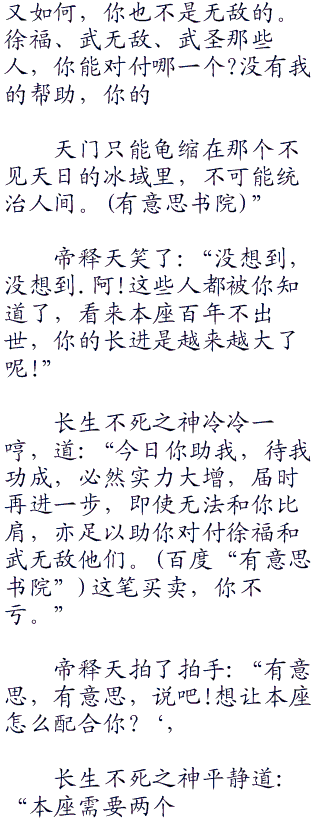 又如何，你也不是无敌的。
徐福、武无敌、武圣那些
人，你能对付哪一个?没有我
的帮助，你的
天门只能龟缩在那个不
见天日的冰域里，不可能统
治人间。(有意思书院)”
帝释天笑了:“没想到，
没想到.阿!这些人都被你知
道了，看来本座百年不出
世，你的长进是越来越大了
呢!”
长生不死之神冷冷一
哼，道:“今日你助我，待我
功成，必然实力大增，届时
再进一步，即使无法和你比
肩，亦足以助你对付徐福和
武无敌他们。(百度“有意思
书院”)这笔买卖，你不
亏。”
帝释天拍了拍手:“有意
思，有意思，说吧!想让本座
怎么配合你?‘,
长生不死之神平静道:
“本座需要两个